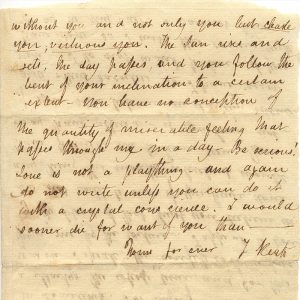 without you and not only you but chaste
you; virtuous you. The Sun rises and
sets, the day passes and you follow the
bent of your inclination to a certain
extent - You have no conception of
the quantity of miserable feeling that
passes through me in a day - Be serious!
Love is not a plaything - and again
do not write unless you can do it
with a crystal conscience. I would
sooner die for want of you than ——
Yours for ever
J Keats